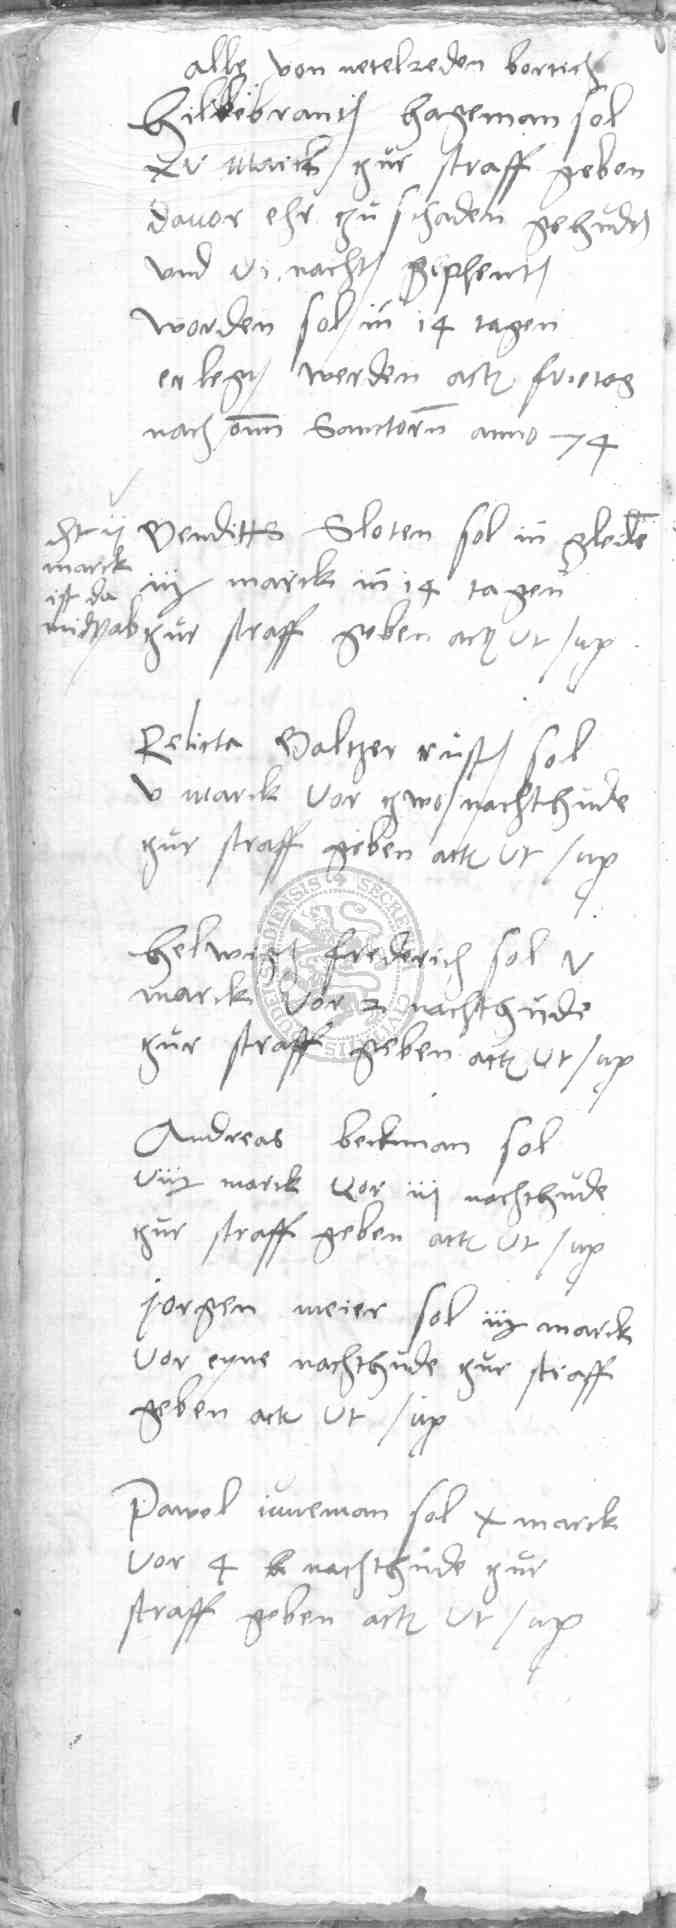 alle von netelreden bortich
Hillebrantt hageman sol
XV marck zur straff geben
davor ehr zu schaden gehudt
vnd vi nacht gephent
worden sol in 14 tagen
erlegt werden act frietag
nach omn Sanctorn anno 74
ht ij
marck
ist da
mid ab
Benditts Sloten sol in gleide
iij marck in 14 tagen
zur straff geben act ut sup
Relicta Baltzer rust sol
v marck vor zwo nachthude
zur straff geben act ut sup
helwigt frederich sol v
marck vor 2 nachthude
zur straff geben act ut sup
Andreas beckman sol
viij marck vor iij nachthude
zur straff geben act ut sup
jorgen meier sol iij marck
vor eyne nachthude zur straff
geben act ut sup
Pawel iuneman sol x marck
vor 4 nachthude zur
straff geben act ut sup